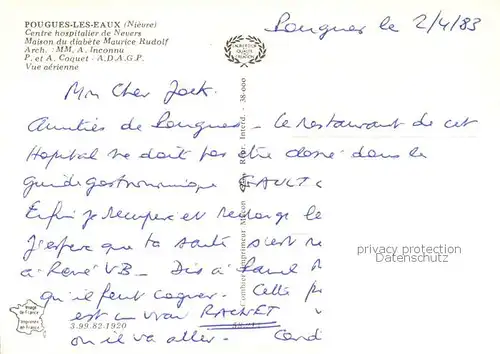 POUGUES-LES-EAUX (Nièvre)
Centre hospitalier de Nevers
Maison du diabète Maurice Rudolf
Arch. : MM. A. Inconnu
P. et A. Coquet - A.D.A.G.P.
Vue aérienne
Pougues le 2/4/83
Mon Cher Jack.
Amitiés de Pougues - Le restaurant de cet
Hopital ne doit pas être classé dans le
guide gastronomique GAULT
Enfin je récupère et recharge le
J'espère que ta santé s'est
à René V.B. - Dis à
qu'il faut cogner. Cette
est un vrai
où il va aller.
Combier Imprimeur Macon
Repr. Interd. - 38-000
privacy protection
Datenschutz
Image de France
Imprimée en France
3.99.82.1920